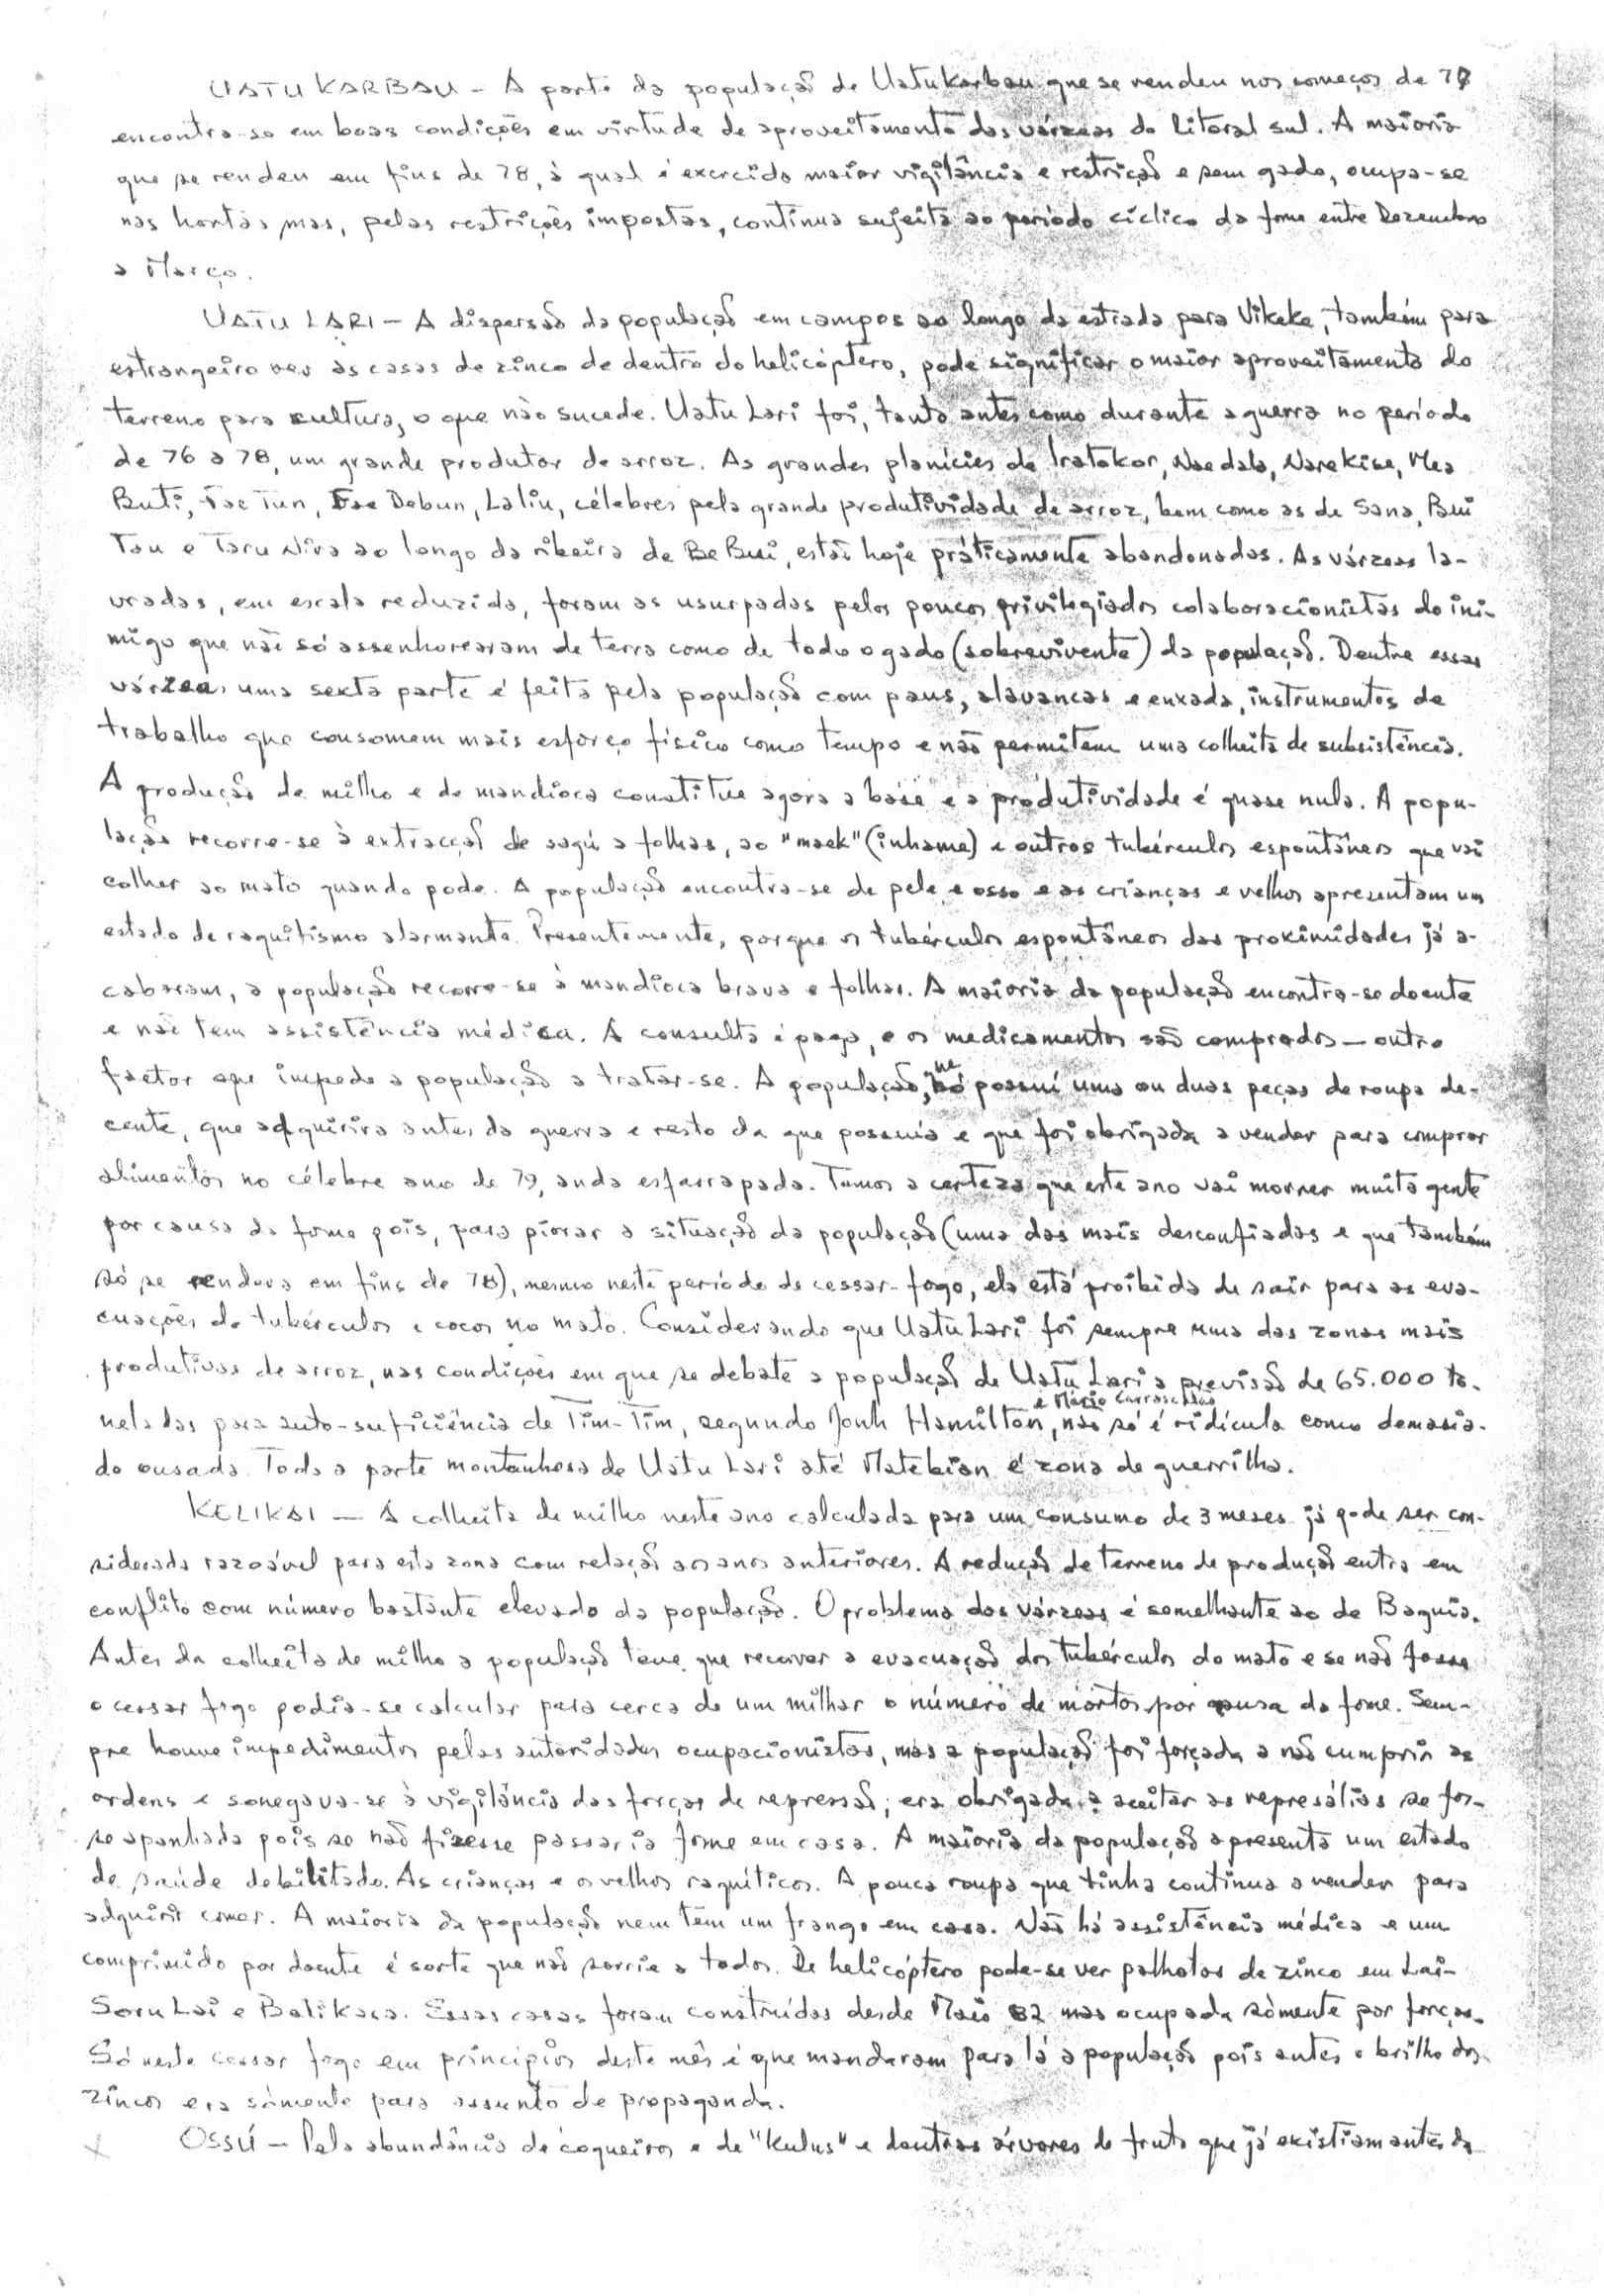 UATU KARBAU – A parte da população de Uatukarbau que se rendeu nos começos de 78
encontra-se em boas condições em virtude de aproveitamento das várzeas do litoral sul. A maioria
que se rendeu em fins de 78, à qual é exercida maior vigilância e restrição e sem gado, ocupa-se
nas hortas mas, pelas restrições impostas, continua sujeita ao período cíclico da fome entre Dezembro
a Março.
UATU LARI – A dispersão da população em campos ao longo da estrada para Vikeke, também para
estrangeiro ver as casas de zinco de dentro do helicóptero, pode significar o maior aproveitamento do
terreno para cultura, o que não sucede. Uatu Lari foi, tanto antes como durante a guerra no período
de 76 a 78, um grande produtor de arroz. As grandes planícies de Iratokor, Naedala, Narekise, Mea
Buti, Fae Tun, Fae Debun, Laliu, célebres pela grande produtividade de arroz, bem como as de Sana, Bui
Tau e Taru Nira ao longo da ribeira de Be Bui, estão hoje práticamente abandonadas. As várzeas la-
vradas, em escala reduzida, foram as usurpadas pelos poucos privilegiados colaboracionistas do ini-
migo que não só assenhorearam de terra como de todo o gado (sobrevivente) da população. Dentre essas
várzeas uma sexta parte é feita pela população com paus, alavancas e enxada, instrumentos de
trabalho que consomem mais esforço físico como tempo e não permitem uma colheita de subsistência.
A produção de milho e de mandioca constitue agora a base e a produtividade é quase nula. A popu-
lação recorre-se à extracção de sagú a folhas, ao "maek" (inhame) e outros tubérculos espontâneos que vai
colher ao mato quando pode. A população encontra-se de pele e osso e as crianças e velhos apresentam um
estado de raquitismo alarmante. Presentemente, porque os tubérculos espontâneos das proximidades já a-
cabaram, a população recorre-se à mandioca brava e folhas. A maioria da população encontra-se doente
e não tem assistência médica. A consulta é paga, e os medicamentos são comprados – outro
factor que impede a população a tratar-se. A população, que só possui uma ou duas peças de roupa de-
cente, que adquirira antes da guerra e resto da que possuia e que foi obrigada a vender para comprar
alimentos no célebre ano de 79, anda esfarrapada. Temos a certeza que este ano vai morrer muita gente
por causa da fome pois, para piorar a situação da população (uma das mais desconfiadas e que também
só se rendera em fins de 78), mesmo neste período de cessar-fogo, ela está proibida de sair para as eva-
cuações de tubérculos e cocos no mato. Considerando que Uatu Lari foi sempre uma das zonas mais
produtivas de arroz, nas condições em que se debate a população de Uatu Lari a previsão de 65.000 to-
neladas para auto-suficiência de Tim-Tim, segundo Jonh Hamilton e Mário Carrascalão, não só é ridícula como demasia-
do ousada. Toda a parte montanhosa de Uatu Lari até Matebian é zona de guerrilha.
KELIKAI – A colheita de milho neste ano calculada para um consumo de 3 meses já pode ser con-
siderada razoável para esta zona com relação aos anos anteriores. A redução de terreno de produção entra em
conflito com número bastante elevado da população. O problema das várzeas é semelhante ao de Baguia.
Antes da colheita de milho a população teve que recorrer a evacuação dos tubérculos do mato e se não fosse
o cessar fogo podia-se calcular para cerca de um milhar o número de mortos por causa da fome. Sem-
pre houve impedimentos pelas autoridades ocupacionistas, mas a população foi forçada a não cumprir as
ordens e sonegava-se à vigilância das forças de repressão; era obrigada a aceitar as represálias se fos-
se apanhada pois se não fizesse passaria fome em casa. A maioria da população apresenta um estado
de saúde debilitado. As crianças e os velhos raquíticos. A pouca roupa que tinha continua a vender para
adquirir comer. A maioria da população nem têm um frango em casa. Não há assistência médica e um
comprimido por doente é sorte que não sorrie a todos. De helicóptero pode-se ver palhotas de zinco em Lai-
Soru Lai e Balikasa. Essas casas foram construídas desde Maio 82 mas ocupada sòmente por forças.
Só neste cessar fogo em princípios deste mês é que mandaram para lá a população pois antes o brilho dos
zincos era sòmente para assunto de propaganda.
OSSÚ – Pela abundância de coqueiros e de "Kulus" e doutras árvores de fruto que já existiam antes da